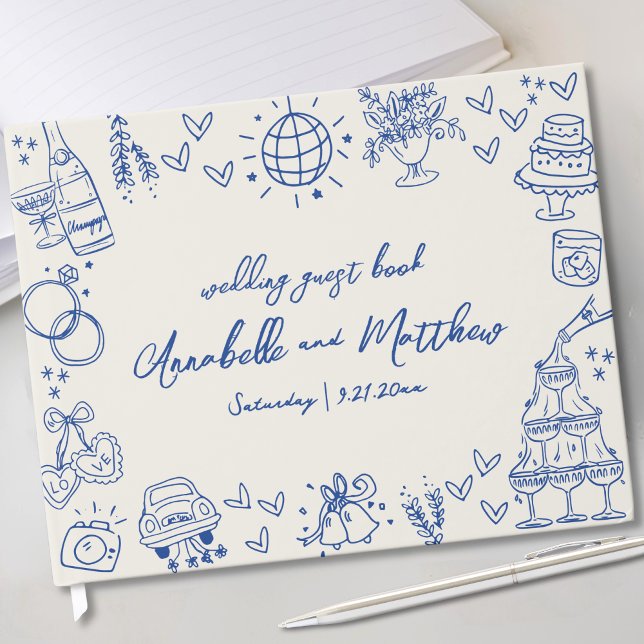 wedding guest book
Annabelle and Matthew
Saturday | 9.21.20xx
Champagne
LO
VE